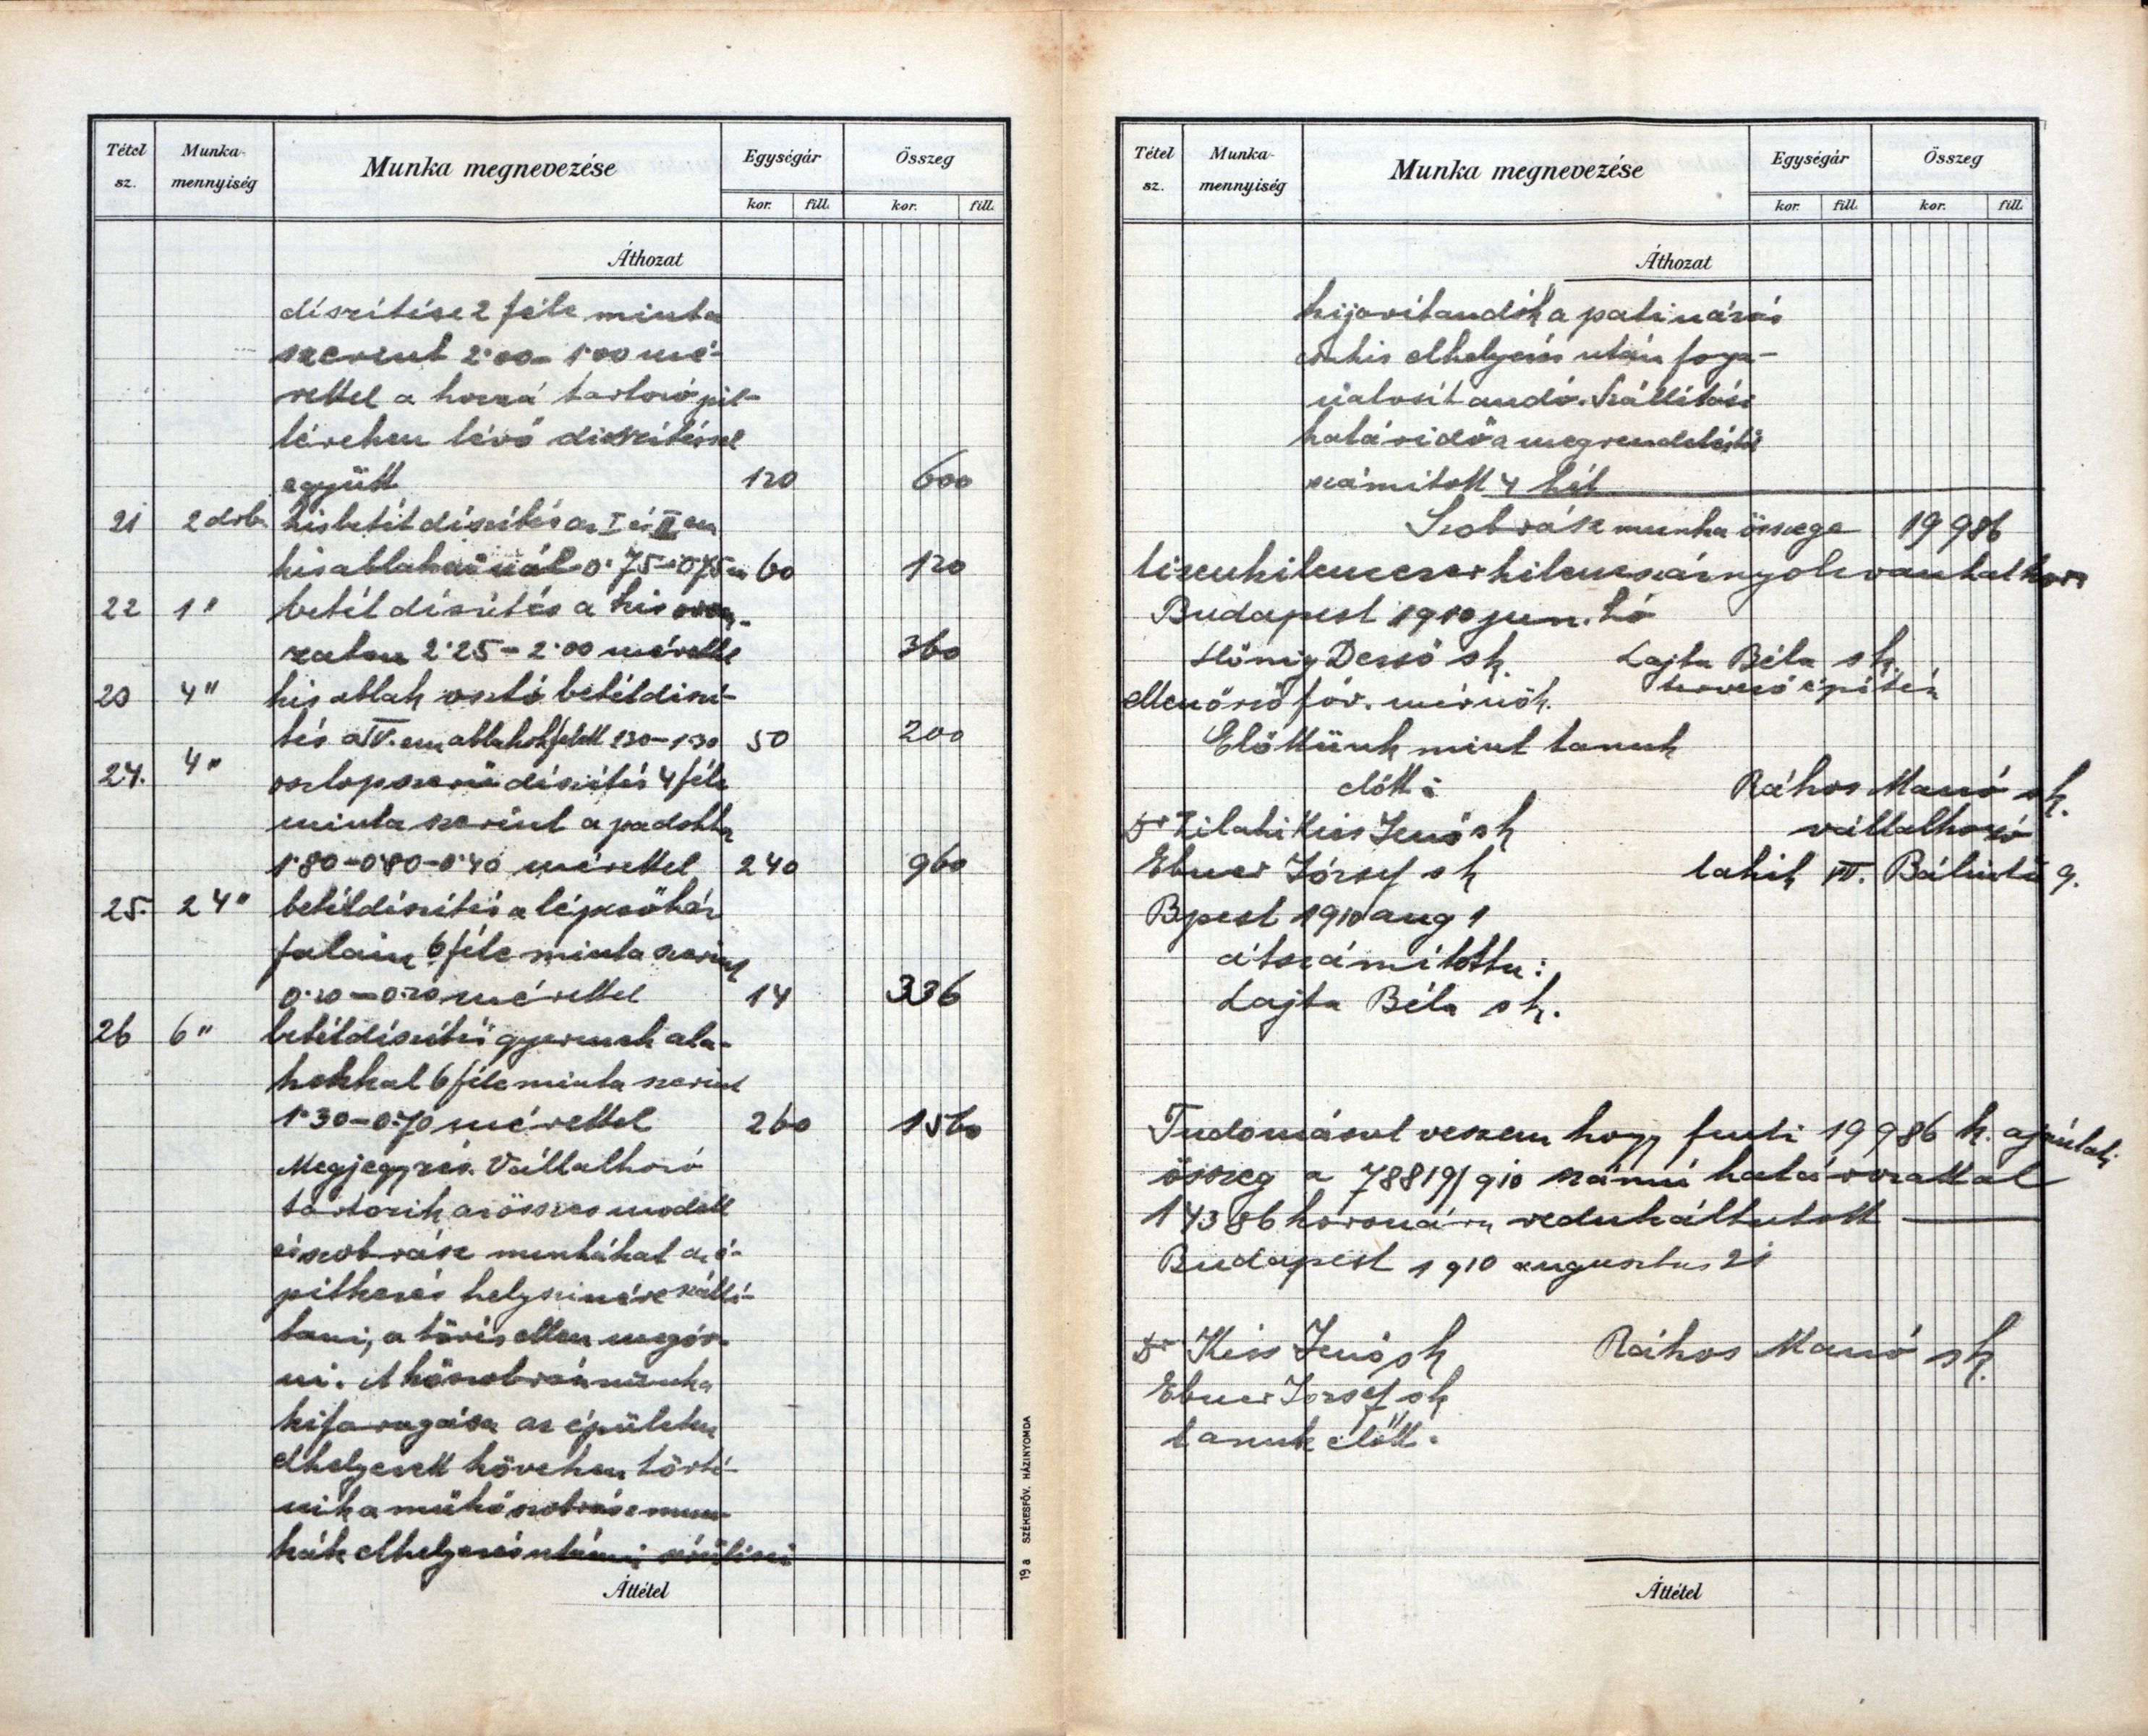 Tétel sz. Munka-mennyiség Munka megnevezése Egységár Összeg
kor. fill. kor. fill.
Áthozat
díszítése 2 féle minta
szerint 2·00–1·00 mé-
rettel a hozzá tartozó pil-
léreken lévő diszítéssel
együtt 120 600
21 2 drb. kis betét díszítés az I és II em
kis ablakainál 0·75–0·75 m 60 120
22 1" betét díszítés a kis orom-
zaton 2·25–2·00 mérettel 360
23 4" kis ablak osztó betétdiszí-
tés a IV. em ablakok felett 1·30–1·30 50 200
24. 4" oszlopszerű díszítés 4 féle
minta szerint a padokhoz
1·80–0·80–0·40 mérettel 240 960
25. 24" betétdíszítés a lépcsőház
falain 6 féle minta szerint
0·20–0·20 mérettel 14 336
26 6" betétdíszítés gyermek ala-
kokkal 6 féle minta szerint
1·30–0·70 mérettel 260 1560
Megjegyzés. Vállalkozó
tartozik az összes modell
és szobrász munkákat az é-
pitkezés helyszinére szállí-
tani, a törés ellen megóv-
ni. A kőszobrász munka
kifaragása az épületen
elhelyezett köveken törté-
nik a műkő szobrász mun-
kák elhelyezés utáni sérülései
Áttétel
19 a SZÉKESFŐV. HÁZINYOMDA
Tétel sz. Munka-mennyiség Munka megnevezése Egységár Összeg
kor. fill. kor. fill.
Áthozat
kijavítandók a patinázás
csakis elhelyezés után foga-
natosítandó. Szállítási
határidő a megrendeléstől
számított 4 hét
Szobrász munka összege 19986
tizenkilencezerkilencszáznyolcvanhat kor
Budapest 1910 jun. hó
Hönig Dezső sk. Lajta Béla sk.
ellenőrző főv. mérnök. tervező építész
Előttünk mint tanuk
előtt: Rákos Manó sk.
Dr Zilahi Kiss Jenő sk vállalkozó
Ebner József sk lakik VII. Bálint u 9.
Bpest 1910 aug 1
átszámította:
Lajta Béla sk.
Tudomásul veszem hogy fenti 19986 k. ajánlati
összeg a 78819/910 számú határozattal
14386 koronára redukáltatott
Budapest 1910 augusztus 21
Dr Kiss Jenő sk Rákos Manó sk.
Ebner József sk
tanuk előtt.
Áttétel